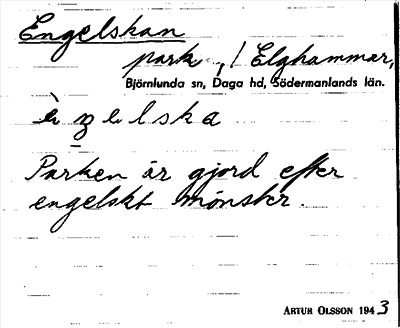 Engelskan
park, / Elghammar,
Björnlunda sn, Daga hd, Södermanlands län.
Parken är gjord efter
engelskt mönster.
ARTUR OLSSON 1943